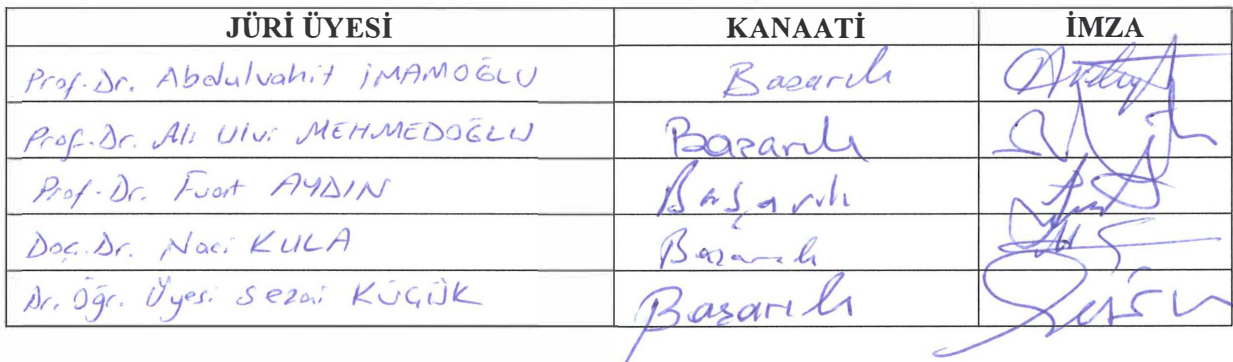 JÜRİ ÜYESİ KANAATİ İMZA
Prof. Dr. Abdulvahit İMAMOĞLU Başarılı
Prof. Dr. Ali Ulvi MEHMEDOĞLU Başarılı
Prof. Dr. Fuat AYDIN Başarılı
Doç. Dr. Naci KULA Başarılı
Dr. Öğr. Üyesi Sezai KÜÇÜK Başarılı